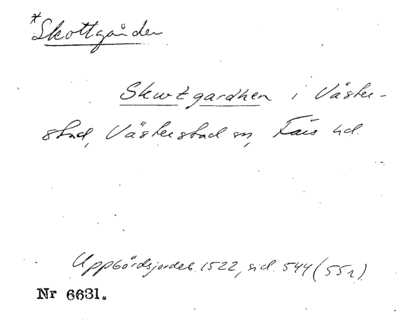 *Skottgården
Skwtgardhen i Väster-
stad, Västerstad sn, Färs hd.
Uppbördsjordeb. 1522, sid. 544 (55r)
Nr 6631.